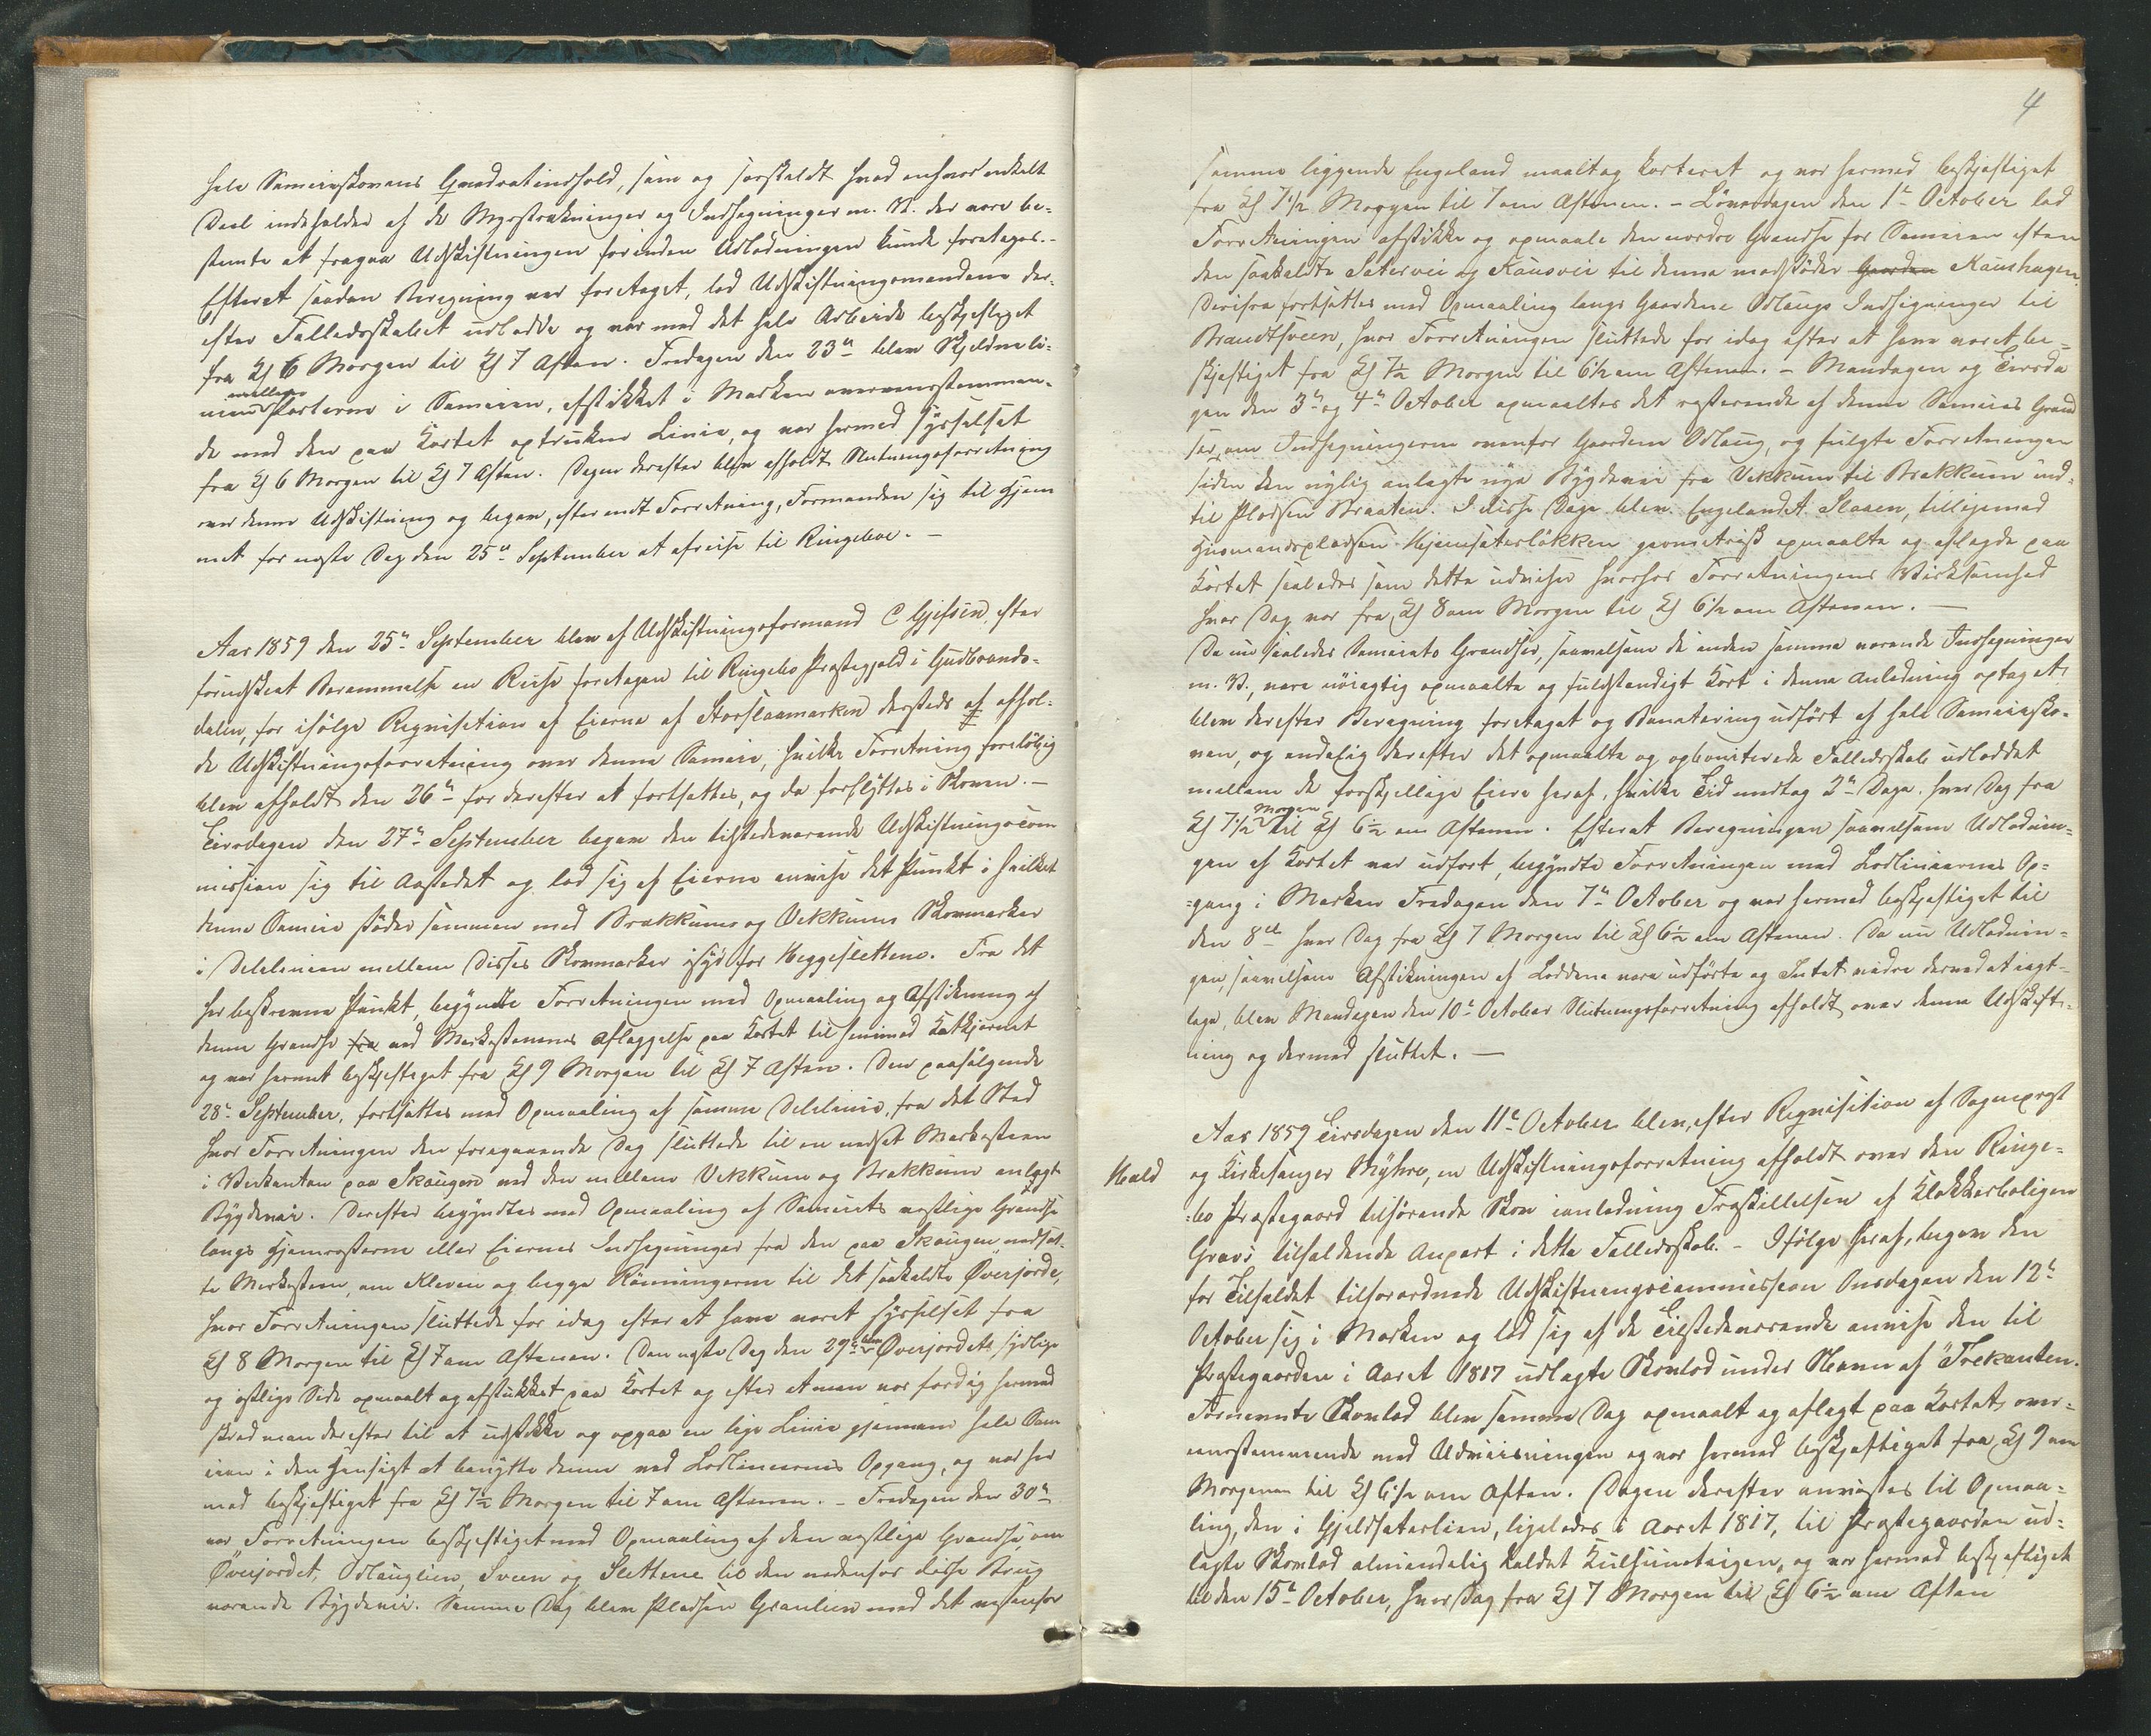 hele Sameieskovens Qvadratindhold, som og særskildt hvad enhver enkelt
Deel indeholder af de Myrstrækninger og Indhegninger m. V. der vare be-
stemte at fragaa Udskiftningen forinden Udlodningen kunde foretages. -
Efterat saadan Beregning var foretaget, lod Udskiftningsmændene der-
efter Fælledsskabet udlodde og var med det hele Arbeide beskjeftiget
fra Kl 6 Morgen til Kl 7 Aften. Fredagen den 23de blev Skjellineli-
mellem
nien Parterne i Sameien, afstikket i Marken overeensstemmen-
de med den paa Kartet optrukne Linie, og var hermed sysselsat
fra Kl 6 Morgen til Kl 7 Aften. Dagen derefter blev afholdt Slutningsforretning
over denne Udskiftning og begav, efter endt Forretning, Formanden sig til Hjem
met for næste Dag den 25de September at afreise til Ringeboe. -
Aar 1859 den 25de September blev af Udskiftningsformand C Gjessen, efter
forudskeet Berammelse en Reise foretagen til Ringebo Præstegjeld i Gudbrands-
dalen, for ifølge Requisition af Eierne af Storslaamarken dersteds at afhol-
de Udskiftningsforretning over denne Sameie, hvilke Forretning foreløbig
blev afholdt den 26de for derefter at fortsættes, og da forflyttes i Skoven. -
Tirsdagen den 27de September begav den tilstedeværende Udskiftningscom
mission sig til Aastedet og lod sig af Eierne anvise det Punkt i hvilket
denne Sameie støder sammen med Brækkums og Vekkums Skovmarker
i Delelinien mellem disses Skovmarker i Syd for Heggeslettene. Fra det
her beskrevne Punkt, begyndte Forretningen med Opmaaling og Afstikning af
denne Grændse fra ved Merkestenenes Aflæggelse paa Kartet til henimod Katkjernet
og var hermet beskjeftiget fra Kl 9 Morgen til Kl 7 Aften. Den paafølgende
28de September, fortsattes med Opmaaling af samme Delelinie, fra det Sted
hvor Forretningen den foregaaende Dag sluttede til en nedsat Merkesteen
i Vestkanten paa Skaugen ved den mellem Vekkum og Brækkum anlagte
Bygdevei. Derefter begyndtes med Opmaaling af Sameiets vestlige Grændse
langs Hjemrasterne eller Eiernes Indhegninger fra den paa Skaugen nedsat-
te Merkesteen, om Kleven og begge Rønningerne til det saakaldte Øverjorde,
hvor Forretningen sluttede for idag efter at have været sysselsat fra
Kl 8 Morgen til Kl 7 om Aftenen. Den næste Dag den 29de blev Øverjordets, sydlige
og østlige Side opmaalt og afstukket paa Kartet og efter at man var færdig hermed
skred man derefter til at udstikke og opgaae en lige Linie gjennem hele Sam
eien i den Hensigt at benytte denne ved Lodliniernes Opgang, og var her
med beskjeftiget fra Kl 7½ Morgen til 7 om Aftenen. - Fredagen den 30de
var Forretningen beskjeftiget med Opmaaling af den vestlige Grændse, om
Øverjordet, Odlauglien, Sveen og Slettene til den nedenfor disse Brug
værende Bygdevei. Samme Dag blev Pladsen Granlien med det nedenfor
4
samme liggende Engeland maaltog karteret og var hermed beskjeftiget
fra Kl 7½ Morgen til 7 om Aftenen. - Løverdagen den 1de October lod
Forretningen afstikke og opmaale den nordre Grændse for Sameien efter
den saakaldte Sætervei og Kausvei til denne modstøder Gaarden Kaushagen.
Derifra fortsattes med Opmaaling langs Gaardene Odlaugs Indhegninger til
Brandtsveen, hvor Forretningen sluttede for idag efter at have været be-
skjeftiget fra Kl 7½ Morgen til 6½ om Aftenen. - Mandagen og Tirsda
gen den 3de og 4de October opmaaltes det resterende af denne Sameies Grænd
ser, om Indhegningerne ovenfor Gaardene Odlaug, og fulgte Forretningen
siden den nylig anlagte nye Bygdevei fra Vekkum til Brækkum ind-
til Pladsen Braaten. I disse Dage blev Engelandet Slaaen, tilligemed
Huusmandspladsen Hjemsæterløkken geometrisk opmaalte og aflagde paa
Kartet saaledes som dette udviser hvorhos Forretningens Virksomhed
hver Dag var fra Kl 8 om Morgen til Kl 6½ om Aftenen. -
Da nu saaledes Sameiets Grændser, saavelsom de inden samme værende Indhegninger
m. V., vare nøiagtig opmaalte og fuldstændigt Kart i denne Anledning optaget,
blev derefter Beregning foretaget og Bonitering udført af hele Sameiesko-
ven, og endelig derefter det opmaalte og opboniterede Fælledsskab udloddet
mellem de forskjellige Eiere heraf, hvilke Tid medtog 2de Dage. hver Dag fra
Morgen
Kl 7½ til Kl 6½ om Aftenen. Efterat Beregningen saavelsom Udlodnin-
gen af Kartet var udført, begyndte Forretningen med Lodliniernes Op-
=gang i Marken Fredagen den 7de October og var hermed beskjeftiget til
den 8de hver Dag fra Kl 7 Morgen til Kl 6½ om Aftenen. Da nu Udlodnin-
gen, saavelsom Afstikningen af Lodderne vare udførte og Intet videre derved at iagt-
tage, blev Mandagen den 10de October Slutningsforretning afholdt over denne Udskift-
ning og dermed sluttet. -
Aar 1859 Tirsdagen den 11te October blev, efter Requisition af Sogneprest
Hald og Kirkesanger Myhre, en Udskiftningsforretning afholdt over den Ringe-
=bo Præstegaard tilhørende Skov i anledning Fraskillelsen af Klokkerboligen
Gravs tilfaldende Anpart i dette Fælledsskab. - Ifølge heraf, begav den
for Tilfældet tilforordnede Udskiftningscommission Onsdagen den 12te
October sig i Marken og lod sig af de Tilstedeværende anvise den til
Præstegaarden i Aaret 1817 udlagte Skovlod under Navn af Trekanten.
Fornevnte Skovlod blev samme Dag opmaalt og aflagt paa Kartet over-
eensstemmende med Udviisningen og var hermed beskjeftiget fra Kl 9 om
Morgenen til Kl 6½ om Aften. Dagen derefter anvistes til Opmaa-
ling, den i Gjeldsæterlien, ligeledes i Aaret 1817, til Præstegaarden ud-
lagte Skovlod almindelig kaldet Kulhuusteigen, og var hermed beskjeftiget
til den 15de October, hver Dag fra Kl 7 Morgen til Kl 6½ om Aften